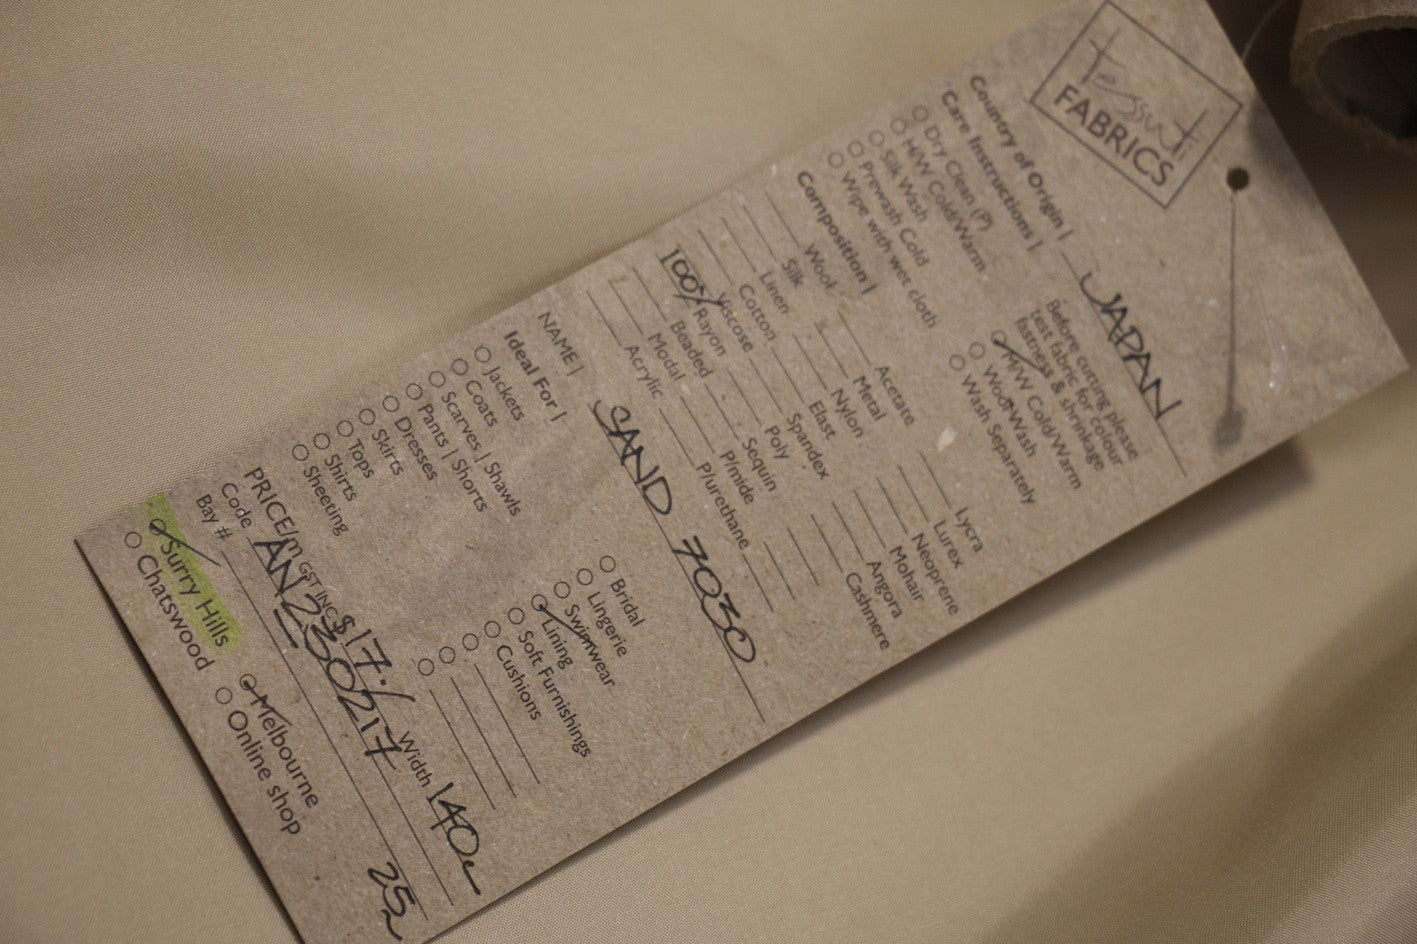 Tessuti
FABRICS
Country of Origin | JAPAN
Care Instructions |
Before cutting please
test fabric for colour
fastness & shrinkage
Dry Clean (P)
H/W Cold/Warm
Silk Wash
Prewash Cold
Wipe with wet cloth
H/W Cold/Warm
Wool Wash
Wash Separately
Composition |
Wool Acetate Lycra
Silk Metal Lurex
Linen Nylon Neoprene
Cotton Elast Mohair
Viscose Spandex Angora
100% Rayon Poly Cashmere
Beaded Sequin
Modal P/mide
Acrylic P/urethane
NAME | SAND 7030
Ideal For |
Jackets Bridal
Coats Lingerie
Scarves | Shawls Swimwear
Pants | Shorts Lining
Dresses Soft Furnishings
Skirts Cushions
Tops
Shirts
Sheeting
PRICE/m GST INC $ 17.- Width 140c
Code AN230217
Bay # 25
Surry Hills Melbourne
Chatswood Online shop